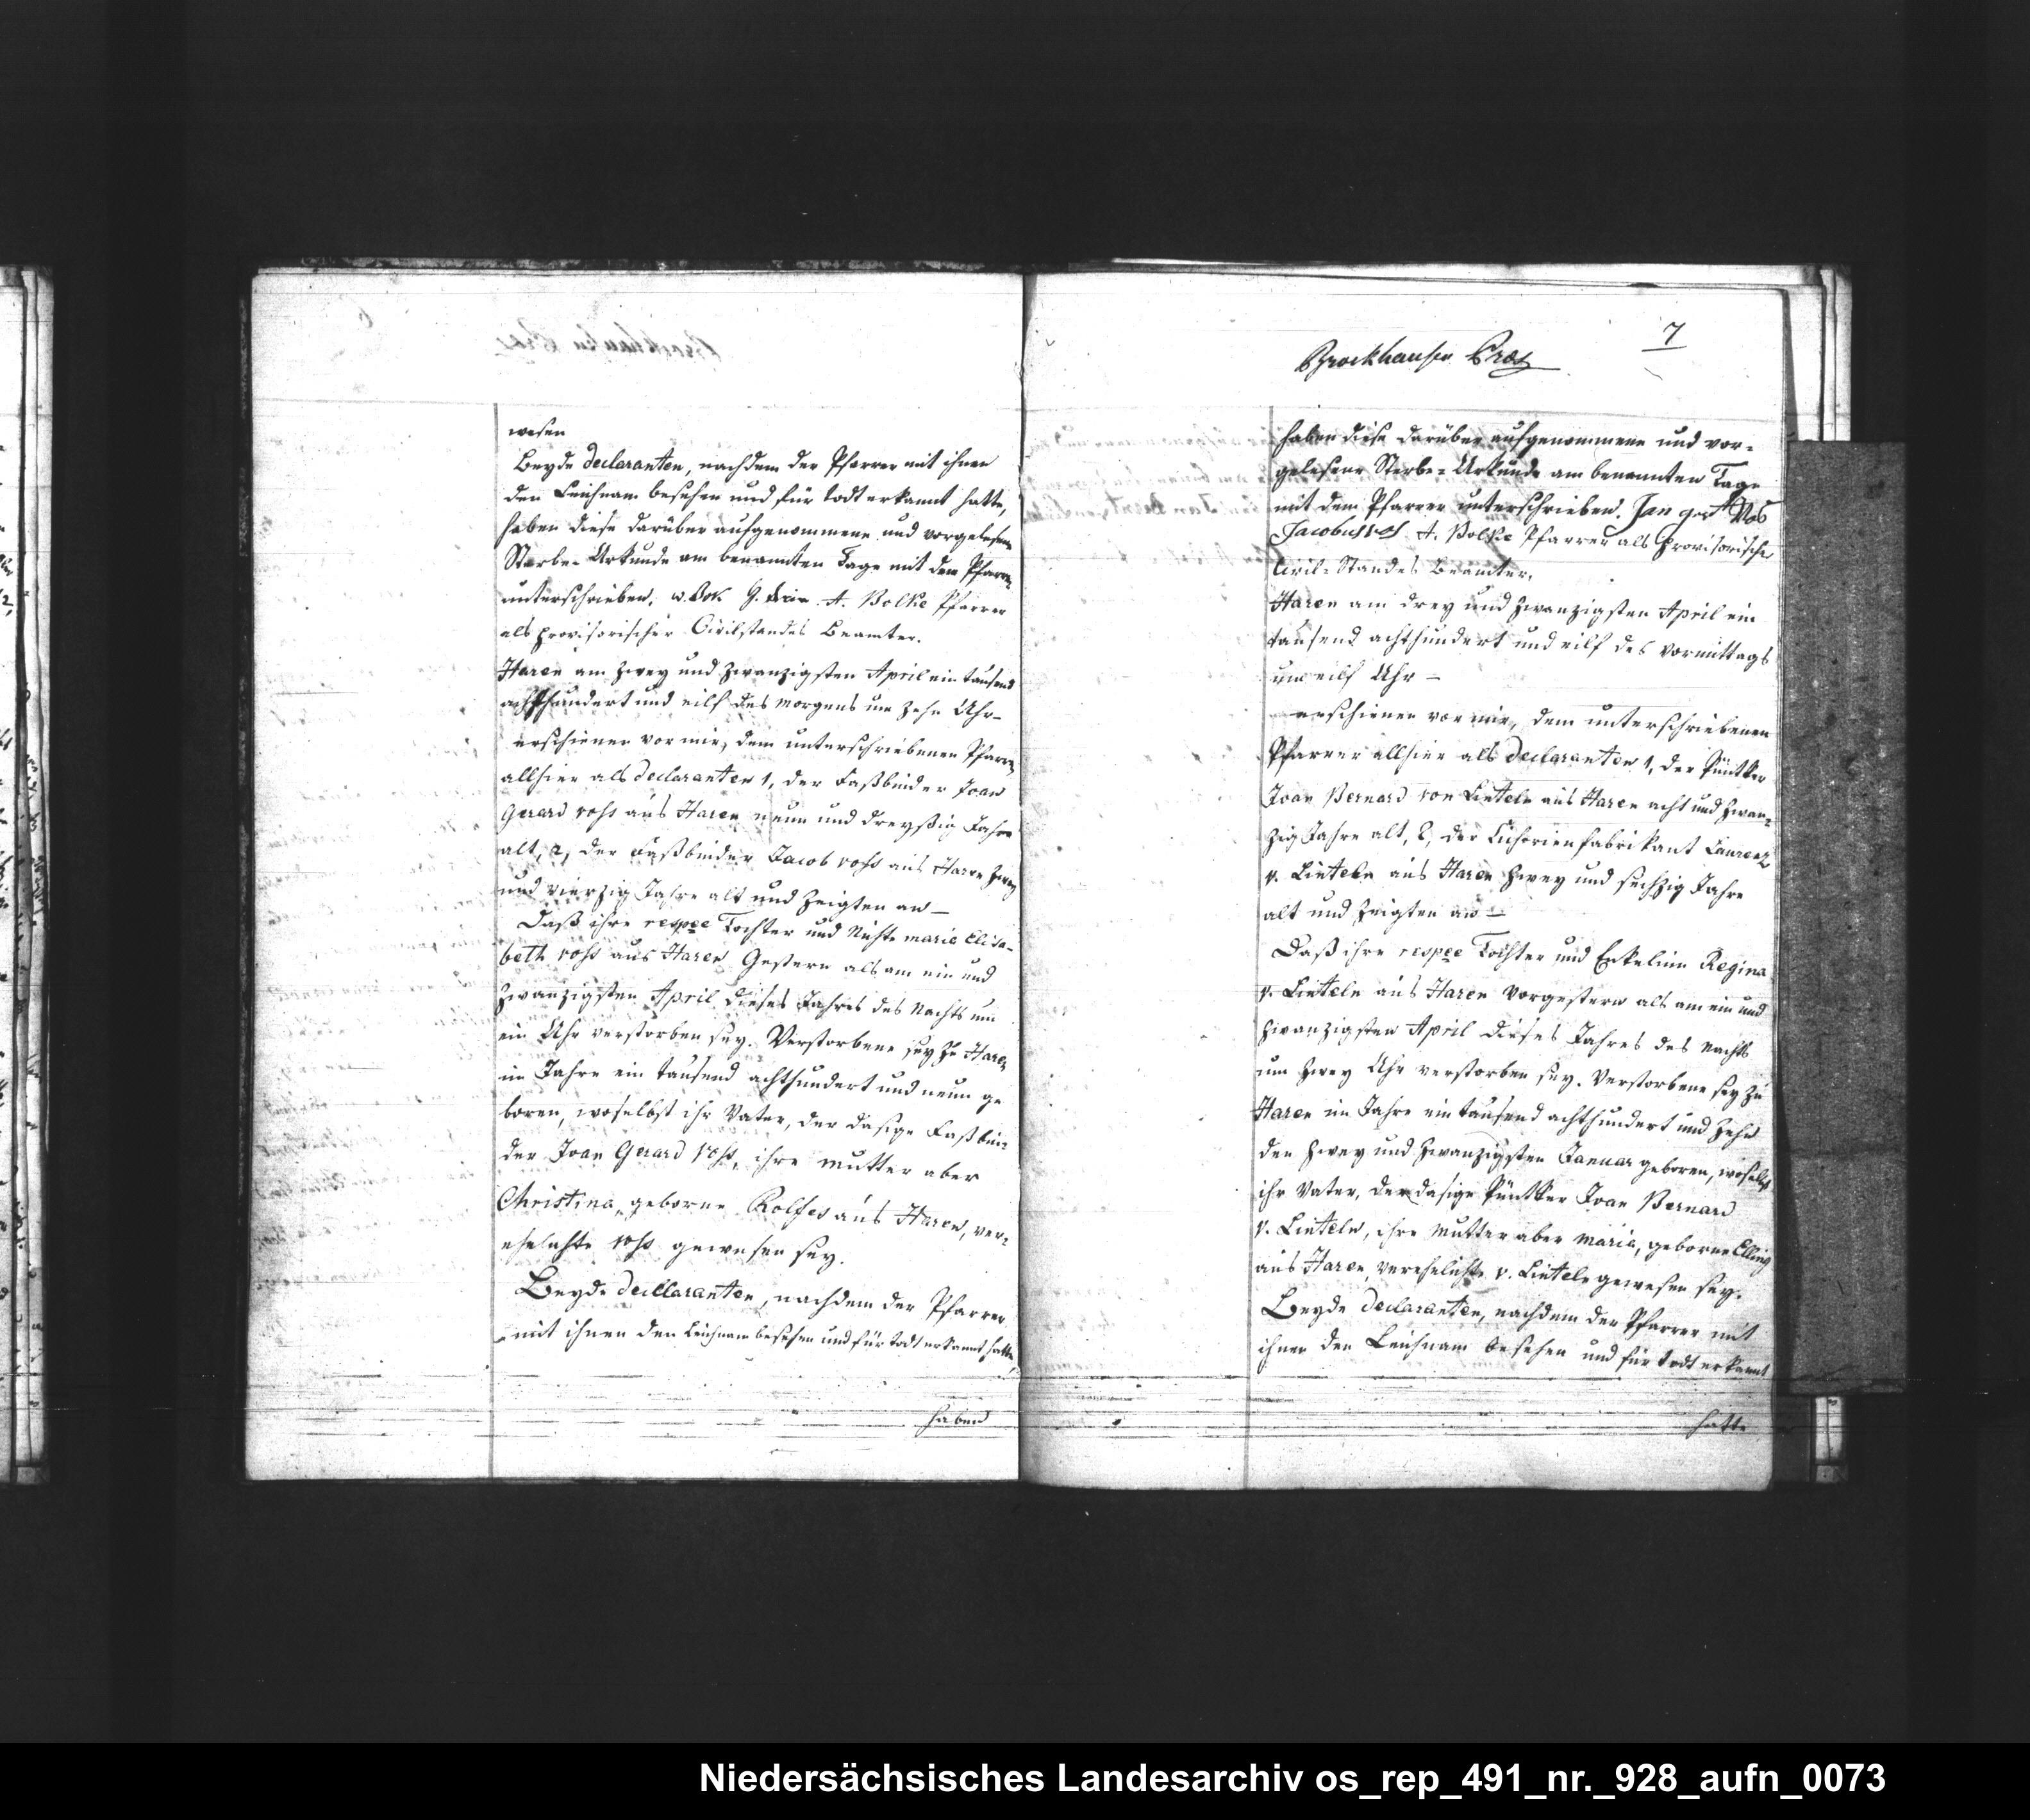 wesen
Beyde declaranten, nachdem der Pfarrer mit ihnen
den Leichnam besehen und für todt erkannt hatte,
haben diese darüber aufgenommene und vorgelesene
Sterbe-Urkunde am benannten Tage mit dem Pfarrer
unterschrieben. A. Bolke Pfarrer
als provisorischer Civilstandes Beamter.
Haren am zwey und zwanzigsten April ein tausend
achthundert und eilf des morgens um zehn Uhr-
erschienen vor mir, dem unterschriebenen Pfarrer
allhier als declaranten 1, der Faßbinder Joan
Gerard voss aus Haren neun und dreyßig Jahre
alt, 2, der Faßbinder Jacob voss aus Haren zwey
und vierzig Jahre alt und zeigten an-
Daß ihre respee Tochter und Nichte maria Elisa-
beth voss aus Haren Gestern als am ein und
zwanzigsten April dieses Jahres des Nachts um
ein Uhr verstorben sey. Verstorbene sey zu Haren
im Jahre ein tausend achthundert und neun ge
boren, woselbst ihr Vater, der dasige Faßbin-
der Joan Gerard voss, ihre mutter aber
Christina, geborne Rolfes aus Haren, ver-
ehelichte voss gewesen sey.
Beyde declaranten, nachdem der Pfarrer
mit ihnen den Leichnam besehen und für todt erkannt hatte,
haben
7
Brockhausen Præs
haben diese darüber aufgenommene und vor-
gelesene Sterbe-Urkunde am benannten Tage
mit dem Pfarrer unterschrieben. Jan gert Vos
Jacobus vos A. Bolke Pfarrer als provisorischer
Civil-Standes Beamter.
Haren am drey und zwanzigsten April ein
tausend achthundert und eilf des vormittags
um eilf Uhr -
erschienen vor mir, dem unterschriebenen
Pfarrer allhier als declaranten 1, der Püntker
Joan Bernard von Linteln aus Haren acht und zwan-
zig Jahre alt, 2, der Cichorienfabrikant Laurenz
v. Linteln aus Haren zwey und sechzig Jahre
alt und zeigten an -
Daß ihre respee Tochter und Enkelinn Regina
v. Linteln aus Haren Vorgestern als am ein und
zwanzigsten April dieses Jahres des Nachts
um zwey Uhr verstorben sey. Verstorbene sey zu
Haren im Jahre ein tausend achthundert und zehn
den zwey und zwanzigsten Januar geboren, woselbst
ihr Vater, der dasige Püntker Joan Bernard
v. Linteln, ihre Mutter aber maria, geborne Elling
aus Haren, verehelichte v. Linteln gewesen sey.
Beyde declaranten, nachdem der Pfarrer mit
ihnen den Leichnam besehen und für todt erkannt
hatte
Niedersächsisches Landesarchiv os_rep_491_nr._928_aufn_0073